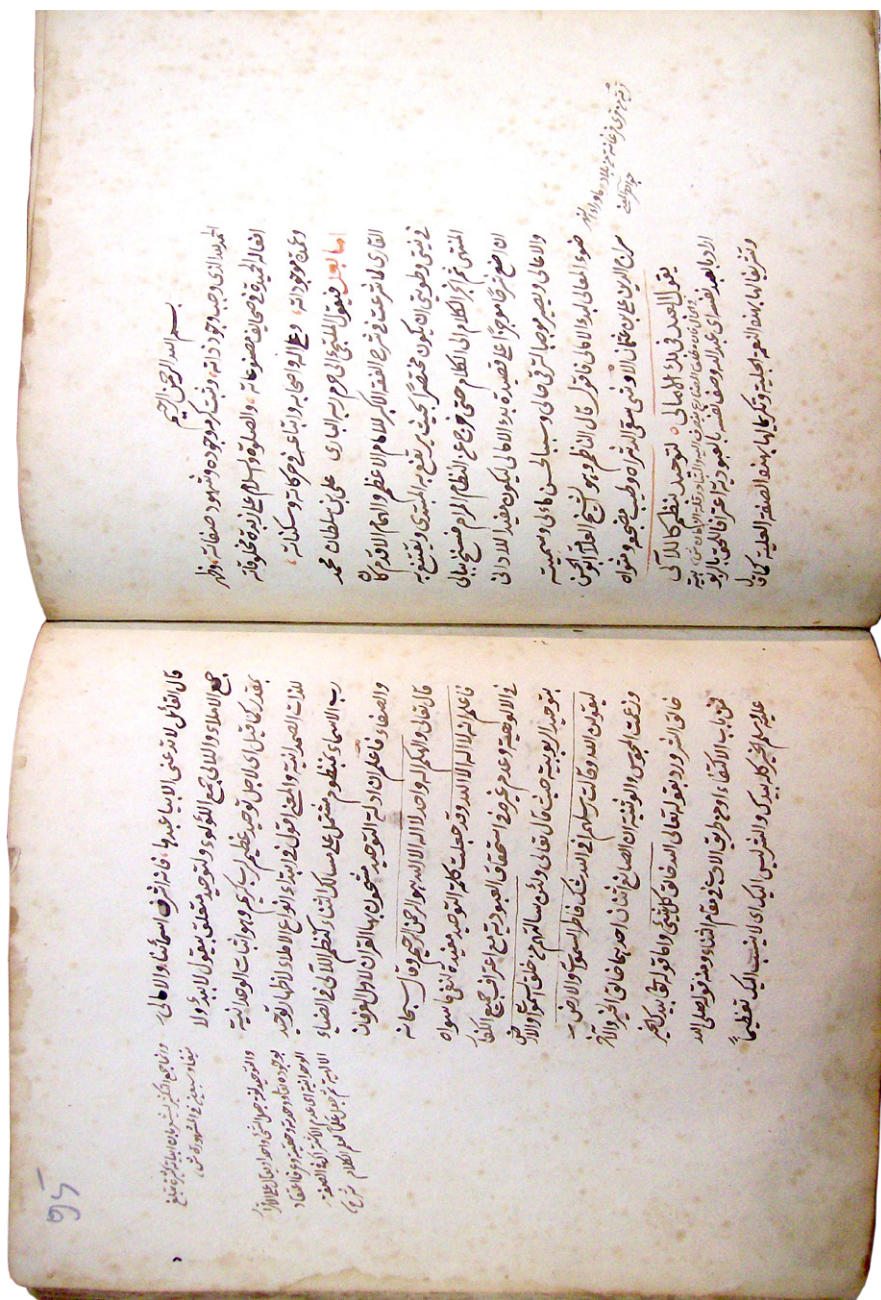 بسم الله الرحمن الرحيم
الحمد لله الذي وجب وجود ذاته وثبت كرم وجوده وشهود صفاته وظهر
افعاله الحميدة في صحايف مصنوعاته والصلوة والسلام على زبدة مخلوقاته
وعمدة موجوداته وعلى اله واصحابه واتباعه في حركاته وسكناته
اما بعد فيقول الملتجئ الى حرم ربه الباري علي بن سلطان محمد
القاري لما شرعت في شرح الفقه الاكبر للامام الاعظم والهمام الاقدم كان
في نيتي وطويتي ان يكون مختصرا بحيث ينتفع به المبتدي ويقتنع به
المنتهي ثم انجر الكلام الى الكلام حتى خرج عن النظام المرام فسنح ببالي
ان اضع شرحا موجزا على قصيدة بدؤ الامالي ليكون مفيدا للاداني
والاعالي ويصير موجبا لترقي حالي وسببا لحسن مآلي وسميته
ضوء المعالي لبدؤ الامالي فاقول قال الناظم وهو الشيخ العلامة ابو الحسن
سراج الدين علي بن عثمان الاوشي سقى الله ثراه وطيب مضجعه ومثواه
يقول العبد في بدؤ الامالي لتوحيد بنظم كاللآلي
اراد بالعبد نفسه اي عبد الله وصف نفسه بالعبودية اعترافا لحقه بالربوبية
وتشريفا لها بهذه النعمة الجلية وتكريما لها بهذه الصفة العلية كما قال
قال القائل لا تدعني الا بيا عبدها فانه اشرف اسمائيا والامالي
جمع الاملاء واللآلي جمع اللؤلؤ ولتوحيد متعلق بيقول لا ببدؤ ولا
بمقدر كما قيل اي لاجل توحيد عظيم لرب كريم وهو اثبات الوحدانية
للذات الصمدانية والمعنى اقول في ابتداء انواع الاملاء لاظهار توحيد
رب الاسماء بمنظوم مشتمل على مسالك الثناء كنظم اللآلي في الضياء
والصفاء فاعلم ان ادلة التوحيد مشحون بها القران لاهل العرفان
قال تعالى والهكم اله واحد لا اله الا هو الرحمن الرحيم وقال سبحانه
فاعلم انه لا اله الا الله وقد جعلت كلمة التوحيد مفيدة لنفي ما سواه
في الالوهية وعدم غيره في استحقاق العبودية مع اعتراف جميع الكفار
بتوحيد الربوبية حيث قال تعالى ولئن سالتهم من خلق السموات والارض
ليقولن الله وقالت رسلهم افي الله شك فاطر السموات والارض
وزعمت المجوس والوثنية ان الصانع اثنان احدهما خالق الخير والآخر
خالق الشر ورد بقوله تعالى الله خالق كل شيء واما قوله تعالى بيدك الخير
فمن باب الاكتفاء او من طريق الادب في مقام الثناء ومنه قوله صلى الله
عليه وسلم الخير كله بيديك والشر ليس اليك اي لا ينسب اليك تعظيما